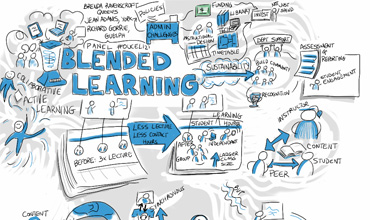 BRENDA RAVENSCROFT
QUEENS
JEAN ADAMS, YORK
RICHARD GORRIE,
GUELPH
PANEL
POLICIES
ADMIN
CHALLENGES
FUNDING
LIBRARY
INSTRUCTIONAL
DESIGN
TIMETABLE
SUSTAINABILITY
DEPT SUPPORT
BUILD COMMUNITY
RECOGNITION
ASSESSMENT
REPORTING
STUDENT
ENGAGEMENT
BLENDED
LEARNING
COLLABORATIVE
ACTIVE
LEARNING
BEFORE: 3x LECTURE
LESS LECTURE
LESS CONTACT
HOURS
LEARNING
STUDENT HOURS
AFTER
GROUP
INDEPENDENT
LARGER
CLASS
SIZE
INSTRUCTOR
CONTENT
STUDENT
PEER
CONTENT
2)
ASYNCHRONOUS